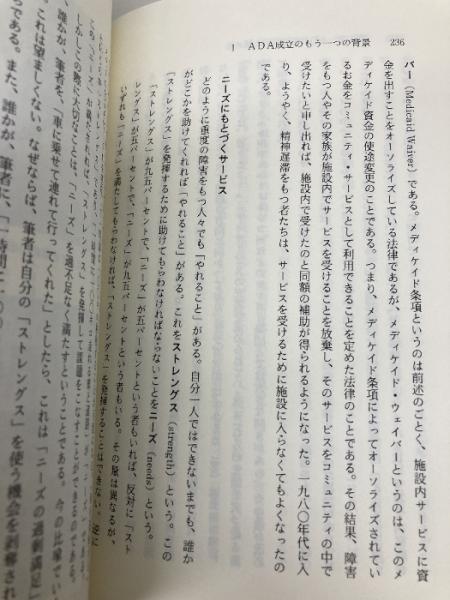 I ADA成立のもう一つの背景 236
バー(Medicaid Waiver)である。メディケイド条項というのは前述のごとく、施設内サービスに資
金を出すことをオーソライズしている法律であるが、メディケイド・ウェイバーというのは、このメ
ディケイド資金の使途変更のことである。つまり、メディケイド条項によってオーソライズされてい
るお金をコミュニティ・サービスとして利用できることを定めた法律のことである。その結果、障害
をもつ人やその家族が施設内でサービスを受けることを放棄し、そのサービスをコミュニティの中で
受けたいと申し出れば、施設内で受けたのと同額の補助が得られるようになった。一九八〇年代に入
り、ようやく、精神遅滞をもつ者たちは、サービスを受けるために施設に入らなくてもよくなったの
である。
ニーズにもとづくサービス
どのように重度の障害をもつ人々でも「やれること」がある。自分一人ではできないまでも、誰か
がどこかを助けてくれれば「やれること」がある。これをストレングス(strength)という。この
「ストレングス」を発揮するために助けてもらわなければならないことをニーズ(needs)という。
「ストレングス」が九五パーセントで、「ニーズ」が五パーセントという者もいれば、反対に「スト
レングス」が五パーセントで、「ニーズ」が九五パーセントという者もいる。その量は異なるが、
いずれも「ニーズ」を満たしてもらわなければ、「ストレングス」を発揮することはできない。逆に
「ニーズ」が満たされれば、「ストレングス」を発揮して課題をこなすことができる
しかしその際に大切なことは、「ニーズ」を過不足なく満たすということである。今の比喩でい
誰かが、筆者を、「車に乗せて連れて行ってくれた」としたら、これは「ニーズの過剰満足」
これは望ましくない。なぜならば、筆者は自分の「ストレングス」を使う機会を剥奪され
である。また、誰かが、筆者に、「一時間に一〇〇